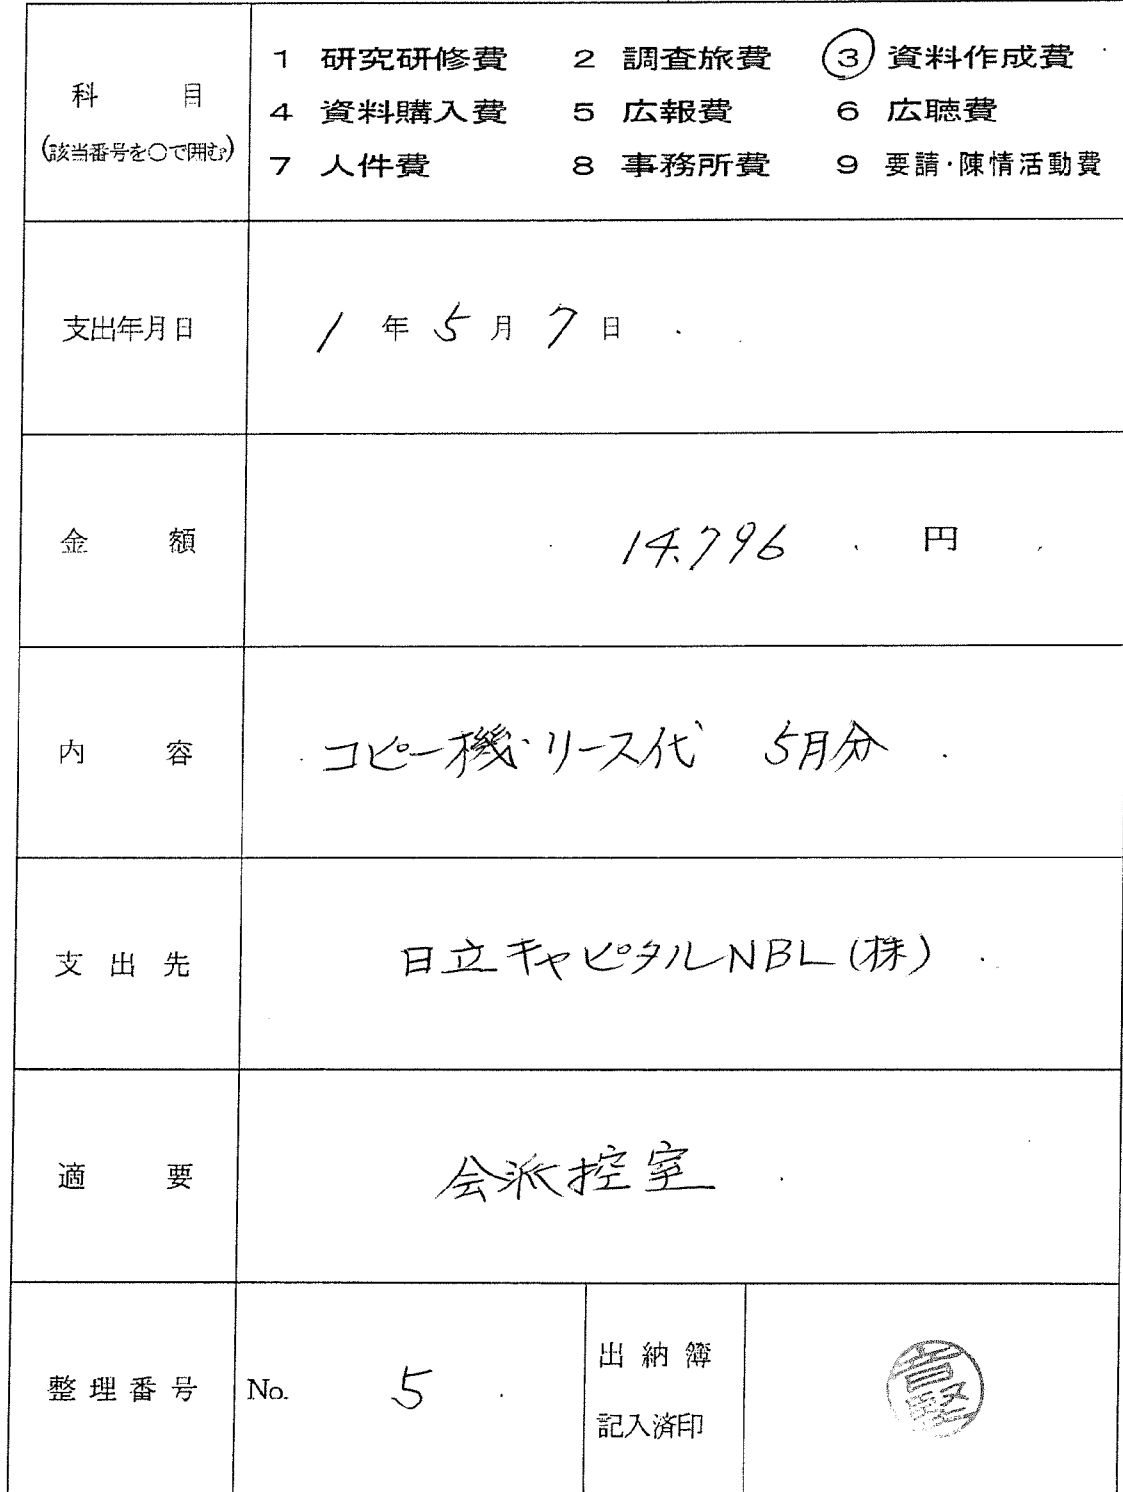 科 目
(該当番号を○で囲む)
1 研究研修費 2 調査旅費 ③ 資料作成費
4 資料購入費 5 広報費 6 広聴費
7 人件費 8 事務所費 9 要請・陳情活動費
支出年月日 1 年 5 月 7 日
金 額 14,796 円
内 容 コピー機リース代 5月分
支 出 先 日立キャピタルNBL(株)
適 要 会派控室
整理番号 No. 5
出納簿
記入済印